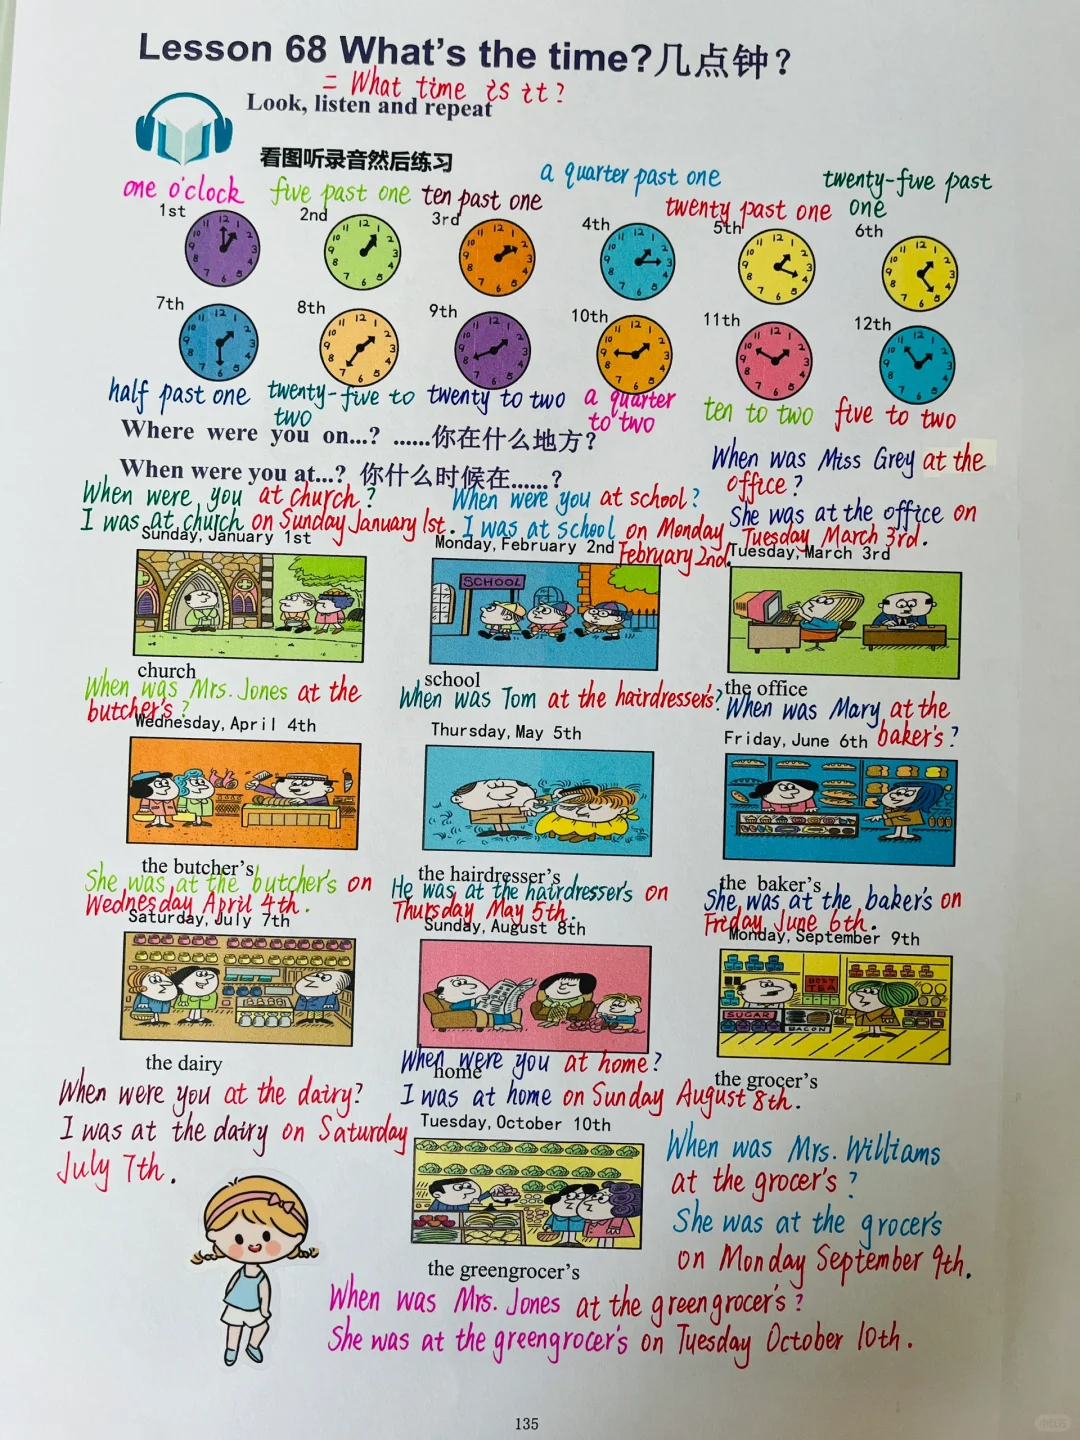 Lesson 68 What's the time?几点钟?
= What time is it?
Look, listen and repeat
看图听录音然后练习
one o'clock
five past one
ten past one
a quarter past one
twenty past one
twenty-five past
one
1st
2nd
3rd
4th
5th
6th
7th
8th
9th
10th
11th
12th
half past one
twenty-five to
two
twenty to two
a quarter
to two
ten to two
five to two
Where were you on...? ......你在什么地方?
When were you at...? 你什么时候在......?
When were you at church?
I was at church on Sunday January 1st.
Sunday, January 1st
church
When were you at school?
I was at school on Monday
February 2nd.
Monday, February 2nd
SCHOOL
school
When was Miss Grey at the
office?
She was at the office on
Tuesday March 3rd.
Tuesday, March 3rd
the office
When was Mrs. Jones at the
butcher's?
Wednesday, April 4th
the butcher's
She was at the butcher's on
Wednesday April 4th.
When was Tom at the hairdresser's?
Thursday, May 5th
the hairdresser's
He was at the hairdresser's on
Thursday May 5th.
When was Mary at the
baker's?
Friday, June 6th
the baker's
She was at the baker's on
Friday June 6th.
Saturday, July 7th
the dairy
When were you at the dairy?
I was at the dairy on Saturday
July 7th.
Sunday, August 8th
home
When were you at home?
I was at home on Sunday August 8th.
Monday, September 9th
BEST
TEA
SUGAR
BACON
the grocer's
When was Mrs. Williams
at the grocer's?
She was at the grocer's
on Monday September 9th.
Tuesday, October 10th
the greengrocer's
When was Mrs. Jones at the greengrocer's?
She was at the greengrocer's on Tuesday October 10th.
135